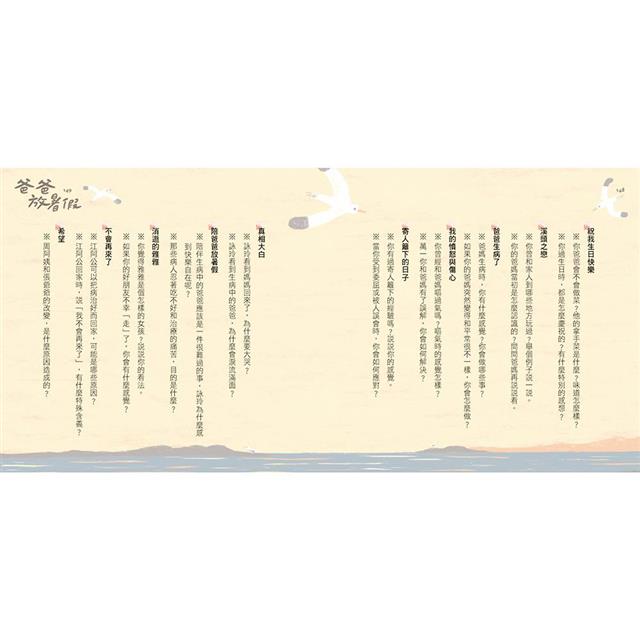 148
祝我生日快樂
※ 你爸爸會不會做菜？他的拿手菜是什麼？味道怎麼樣？
※ 你過生日時，都是怎麼慶祝的？有什麼特別的感想？
溪頭之戀
※ 你曾和家人到哪些地方玩過？舉個例子說一說。
※ 你的爸媽當初是怎麼認識的？問問爸媽再說說看。
爸爸生病了
※ 爸媽生病時，你有什麼感覺？你會做哪些事？
※ 如果你的爸媽突然變得和平常很不一樣，你會怎麼做？
我的憤怒與傷心
※ 你曾經和爸媽嘔過氣嗎？嘔氣時的感覺怎樣？
※ 萬一你和爸媽有了誤解，你會如何解決？
寄人籬下的日子
※ 你有過寄人籬下的經驗嗎？說說你的感覺。
※ 當你受到委屈或被人誤會時，你會如何應對？
真相大白
※ 詠玲看到媽媽回來了，為什麼要大哭？
※ 詠玲看到生病中的爸爸，為什麼會淚流滿面？
陪爸爸放暑假
※ 陪伴生病中的爸爸應該是一件很難過的事，詠玲為什麼感
到快樂自在呢？
※ 那些病人忍著吃不好和治療的痛苦，目的是什麼？
消逝的雅雅
※ 你覺得雅雅是個怎樣的女孩？說說你的看法。
※ 如果你的好朋友不幸「走」了，你會有什麼感覺？
不會再來了
※ 江阿公可以把病治好而回家，可能是哪些原因？
※ 江阿公回家時，說「我不會再來了」，有什麼特殊含義？
希望
※ 周阿姨和張爺爺的改變，是什麼原因造成的？
149
爸爸
放暑假